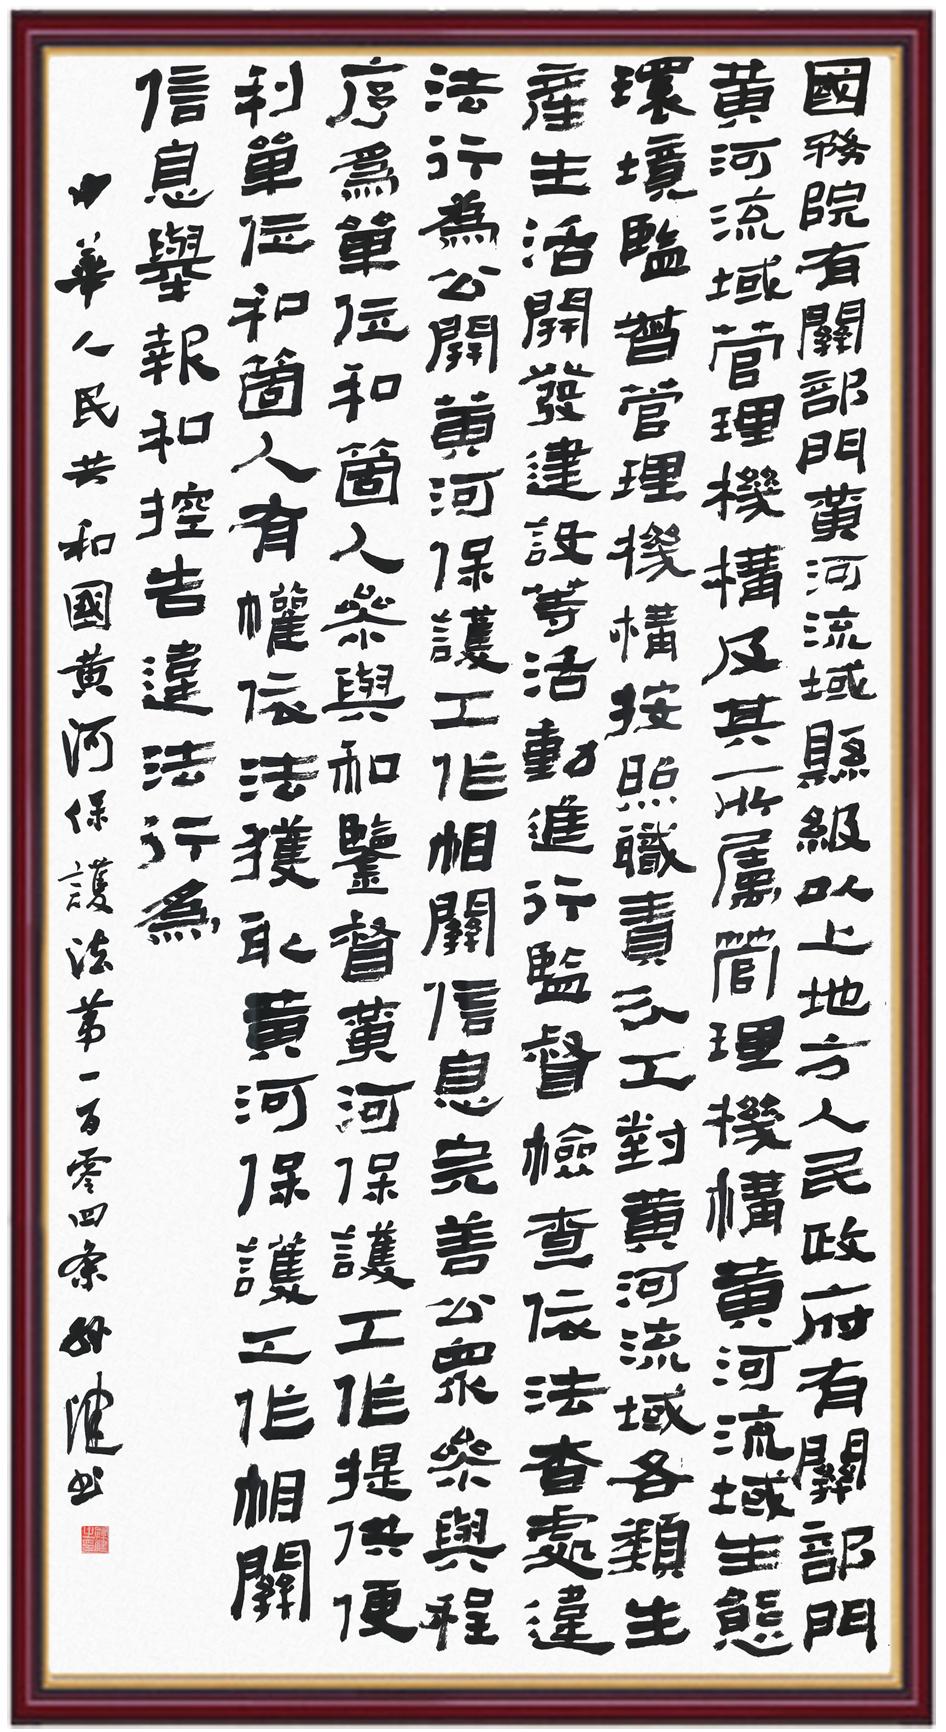 國務院有關部門黃河流域縣級以上地方人民政府有關部門
黃河流域管理機構及其所屬管理機構黃河流域生態
環境監督管理機構按照職責分工對黃河流域各類生
產生活開發建設等活動進行監督檢查依法查處違
法行為公開黃河保護工作相關信息完善公眾參與程
序為單位和箇人參與和鑒督黃河保護工作提供便
利單位和箇人有權依法獲取黃河保護工作相關
信息舉報和控告違法行為
中華人民共和國黃河保護法第一百零四条孙健书